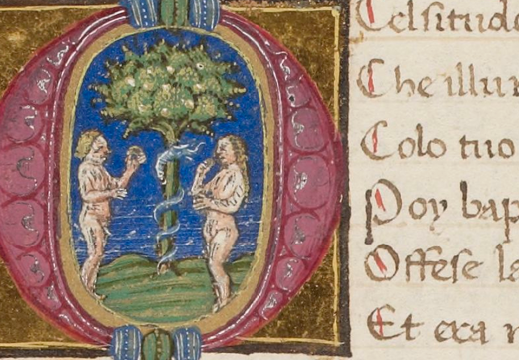 Celsitudo
Che illum
Colo tuo
Poy bap
Offese la
Et era